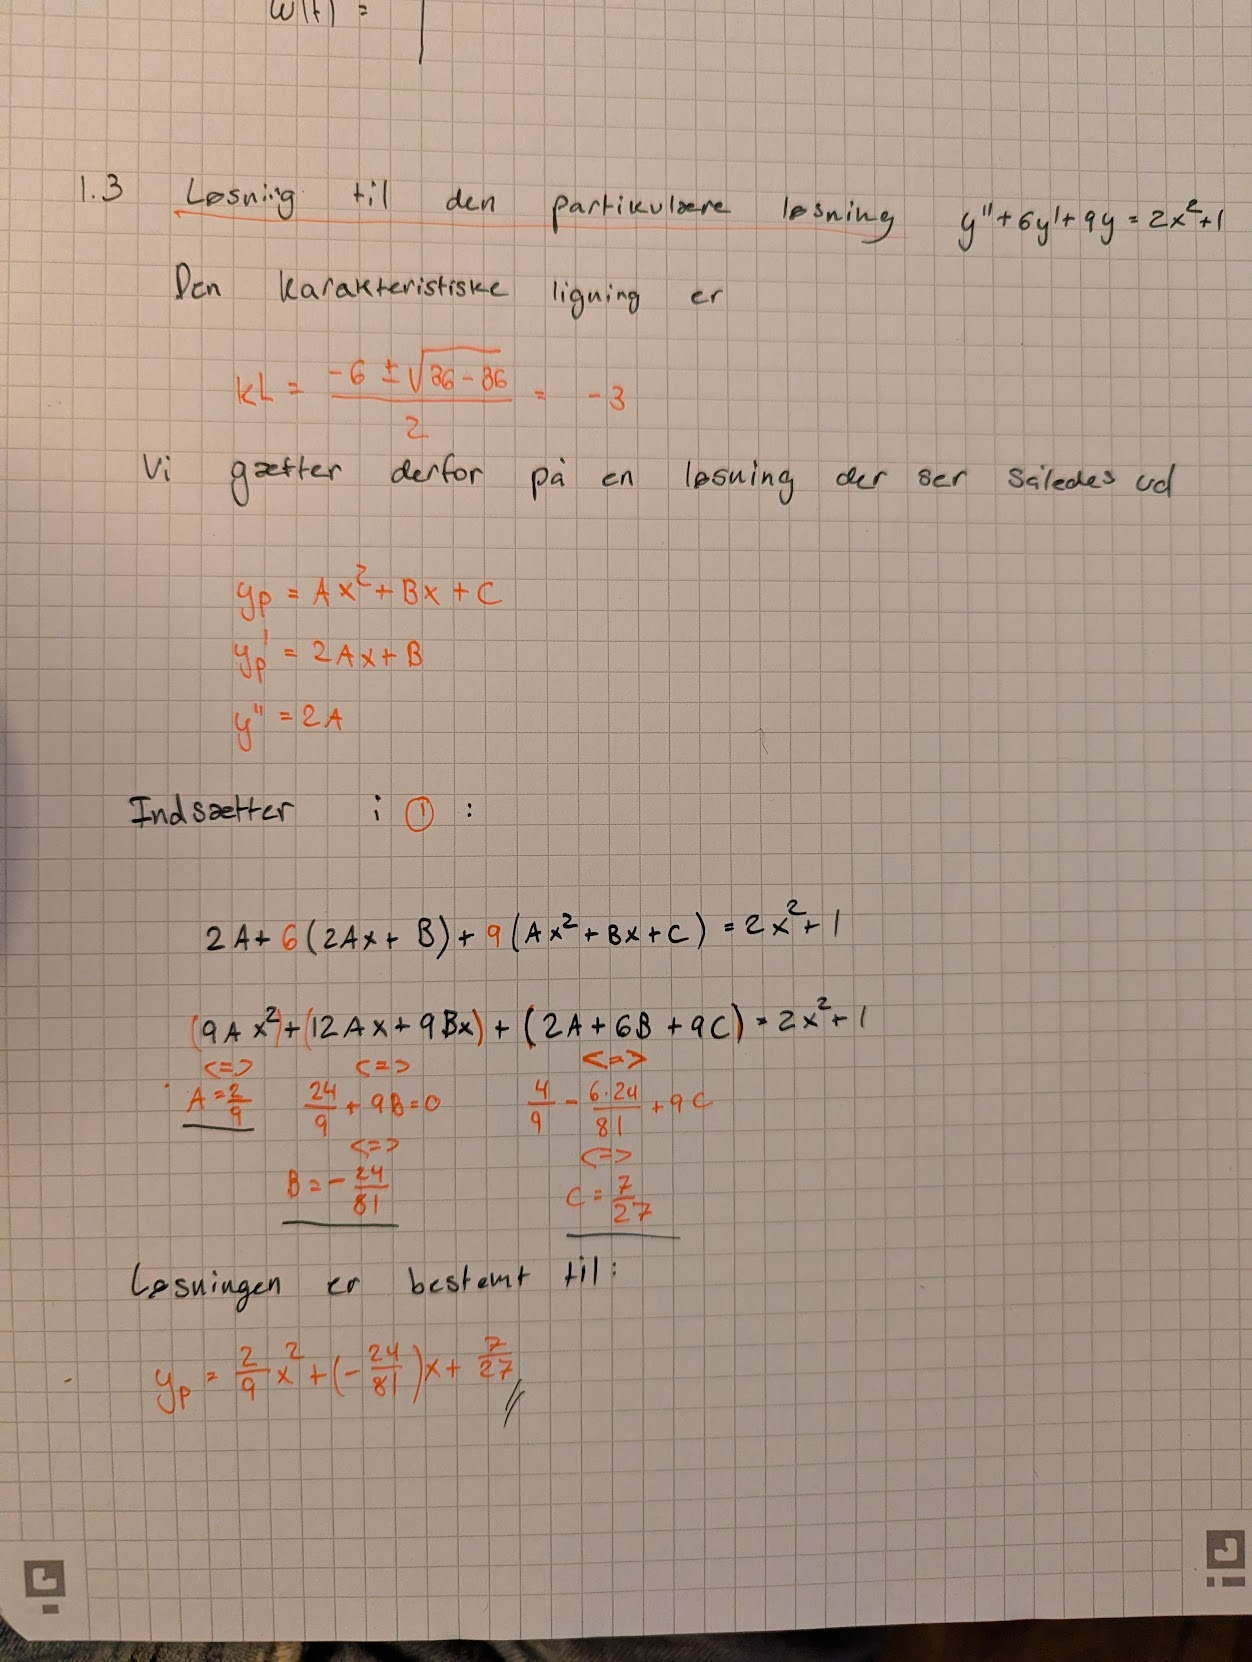 W(t) =
1.3 Løsning til den partikulære løsning y'' + 6y' + 9y = 2x² + 1
Den karakteristiske ligning er
KL = (-6 ± √(36 - 36)) / 2 = -3
Vi gætter derfor på en løsning der ser således ud
yp = Ax² + Bx + C
yp' = 2Ax + B
y'' = 2A
Indsætter i ① :
2A + 6(2Ax + B) + 9(Ax² + Bx + C) = 2x² + 1
(9Ax²) + (12Ax + 9Bx) + (2A + 6B + 9C) = 2x² + 1
<=> <=> <=>
A = 2/9 24/9 + 9B = 0 4/9 - 6·24/81 + 9C
<=> <=>
B = -24/81 C = 7/27
Løsningen er bestemt til:
yp = 2/9 x² + (-24/81)x + 7/27 //